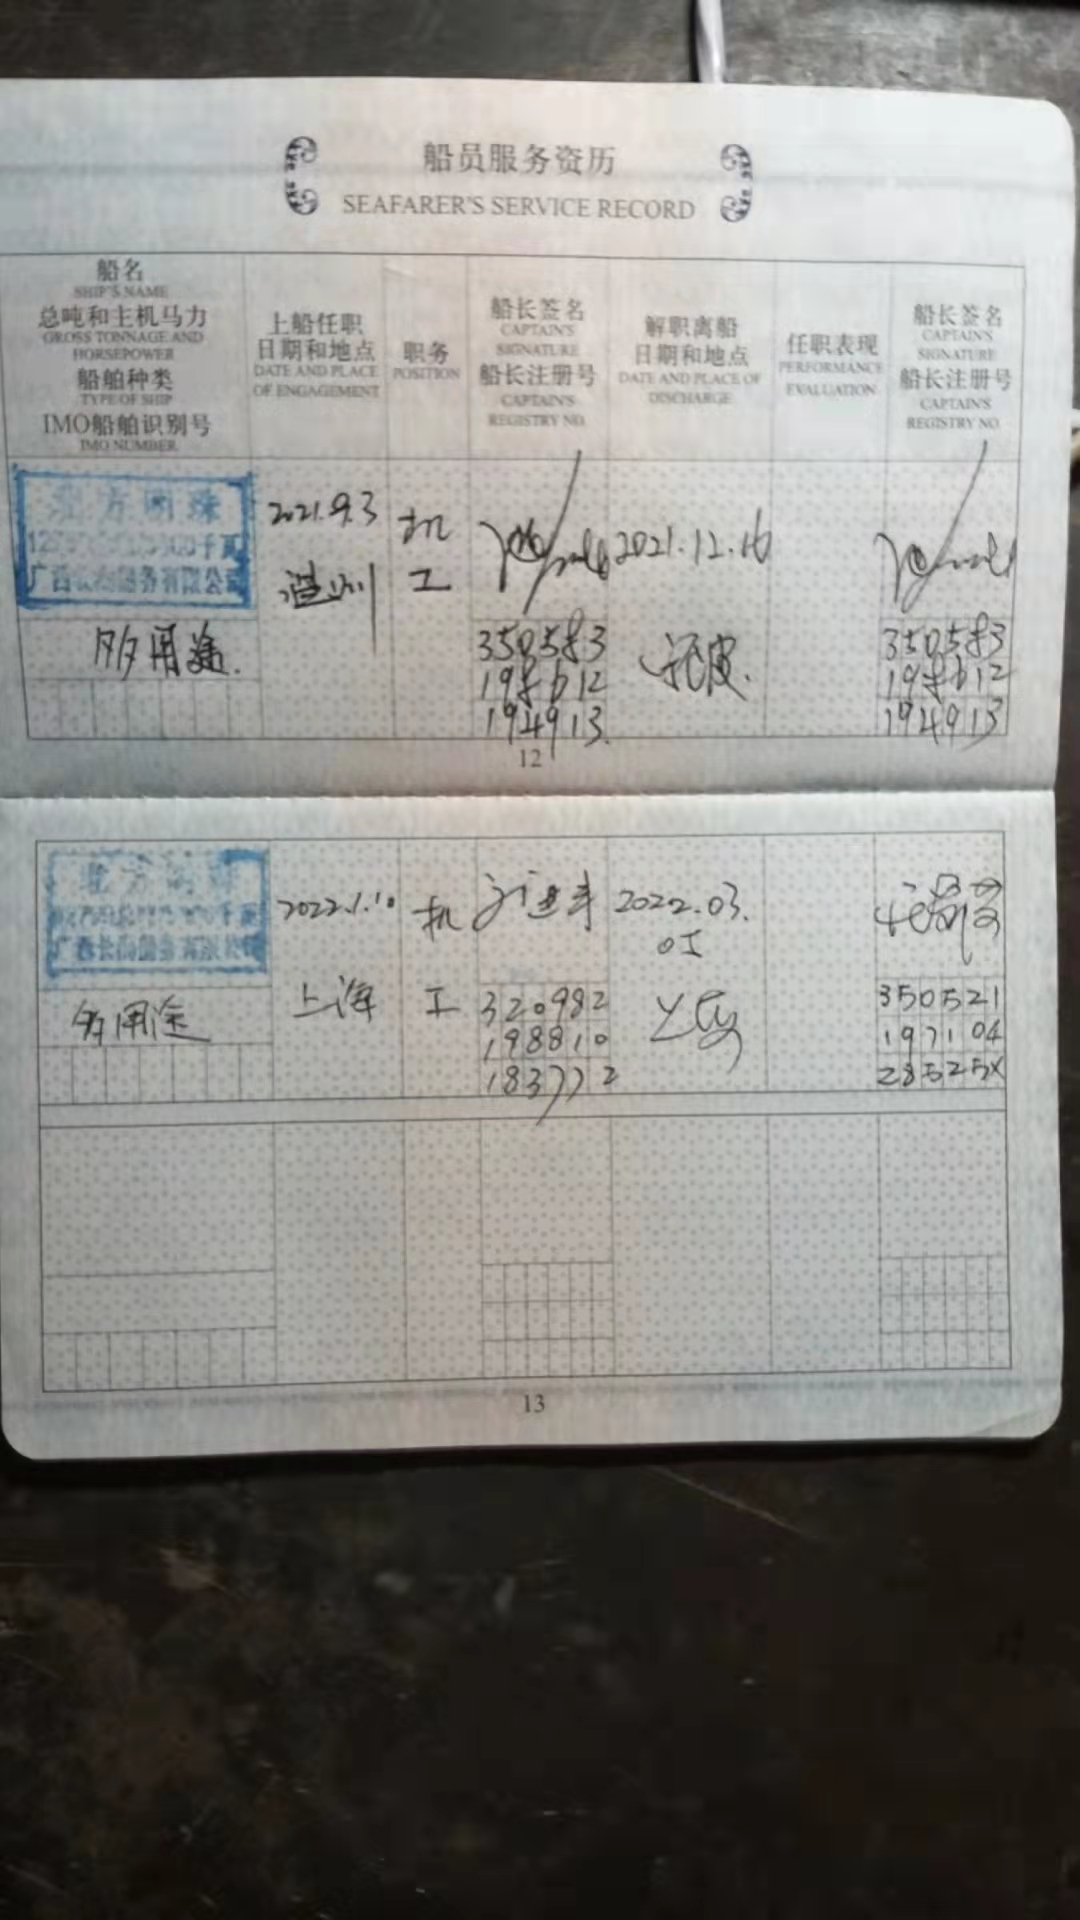 船员服务资历
SEAFARER'S SERVICE RECORD
船名
SHIP'S NAME
总吨和主机马力
GROSS TONNAGE AND
HORSEPOWER
船舶种类
TYPE OF SHIP
IMO船舶识别号
IMO NUMBER
上船任职
日期和地点
DATE AND PLACE
OF ENGAGEMENT
职务
POSITION
船长签名
CAPTAIN'S
SIGNATURE
船长注册号
CAPTAIN'S
REGISTRY NO.
解职离船
日期和地点
DATE AND PLACE OF
DISCHARGE
任职表现
PERFORMANCE
EVALUATION
船长签名
CAPTAIN'S
SIGNATURE
船长注册号
CAPTAIN'S
REGISTRY NO.
北方明珠
千瓦
广西长海服务有限公司
多用途.
2021.9.3
机
工
350583
194913.
2021.12.16
350583
194913
12
北方明珠
千瓦
多用途
2022.1.10
上海
机
工
320982
198810
183772
2022.03.
350521
197104
28525X
13